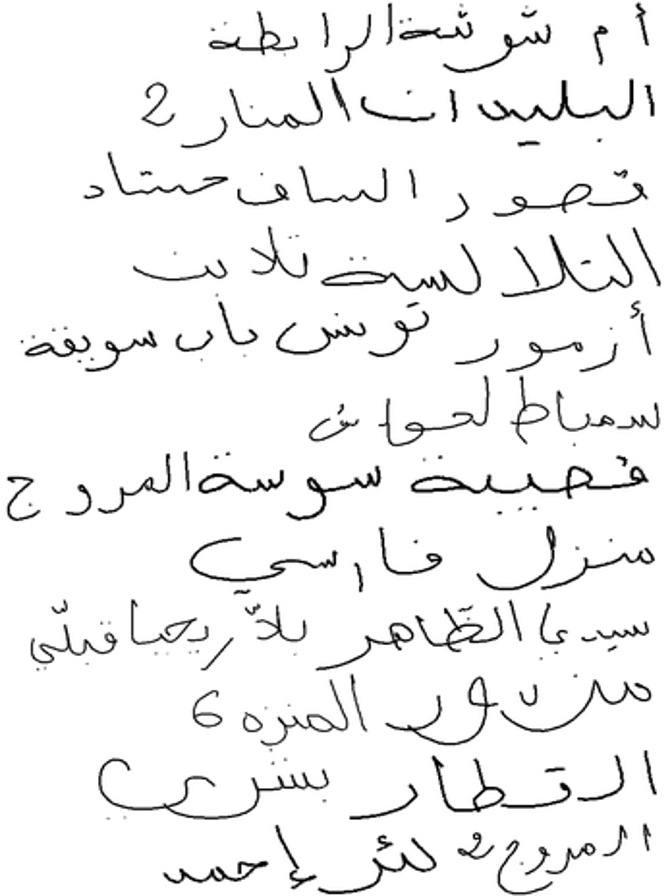 أم شوشة الرابطة
البليدات المنار 2
قصور الساف حشاد
التلالسة تلابت
أزمور تونس باب سويقة
سمباط لحواش
قصيبة سوسة المروج
منزل فارسي
سيدي الظاهر بلاّريجيا قبلّي
منزه المنزه 6
القطار بشري
المروج 2 بئر إحمد